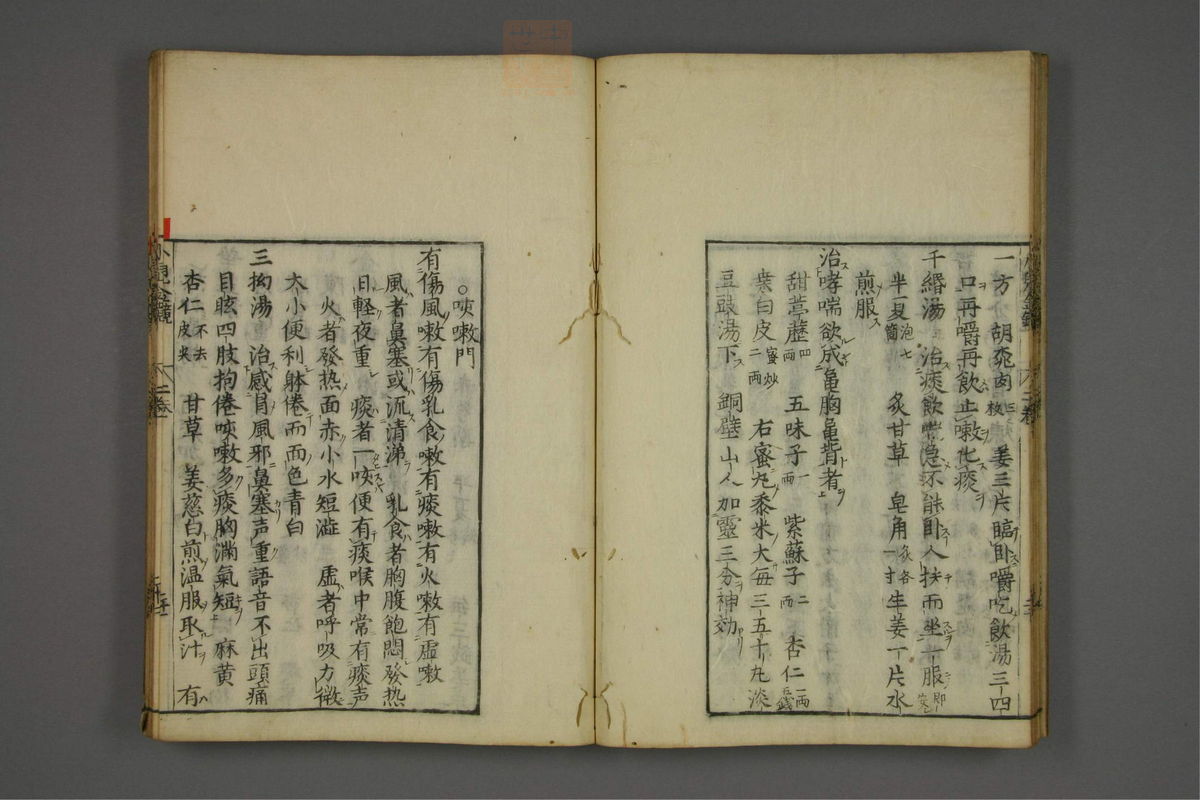 一方　胡桃肉三枚　姜三片臨卧嚼吃飲湯三四
口再嚼再飲止嗽化痰
千緡湯　治痰飲喘急不能卧人扶而坐一服即安
半夏泡七箇　炙甘草　皂角炙各一寸生姜一片水
煎服
治哮喘欲成亀胸亀背者
甜葶藶四両　五味子一両　紫蘇子二両　杏仁一両五銭
桒白皮蜜炒二両　右蜜丸黍米大毎三五十丸淡
豆豉湯下　銅壁山人加靈三分神効
○咳嗽門
有傷風嗽有傷乳食嗽有痰嗽有火嗽有虚嗽
風者鼻塞或流清涕　乳食者胸腹飽悶發热
日軽夜重　痰者一咳便有痰喉中常有痰声
火者發热面赤小水短澁　虚者呼吸方微
大小便利躰倦而面色青白
三拗湯　治感冒風邪鼻塞声重語音不出頭痛
目眩四肢拘倦咳嗽多痰胸満氣短　麻黄
杏仁不去皮尖　甘草　姜葱白煎温服取汁　有
小児全鏡　二巻